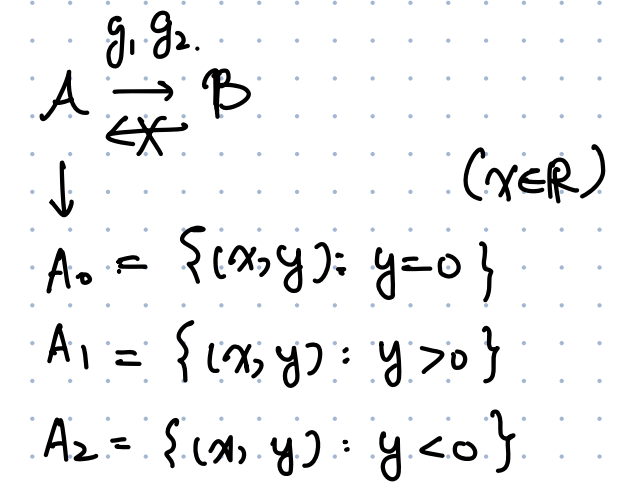 g₁ g₂.
A → B
↚
(x∈ℝ)
↓
A₀ = {(x,y): y=0}
A₁ = {(x,y): y>0}
A₂ = {(x,y): y<0}